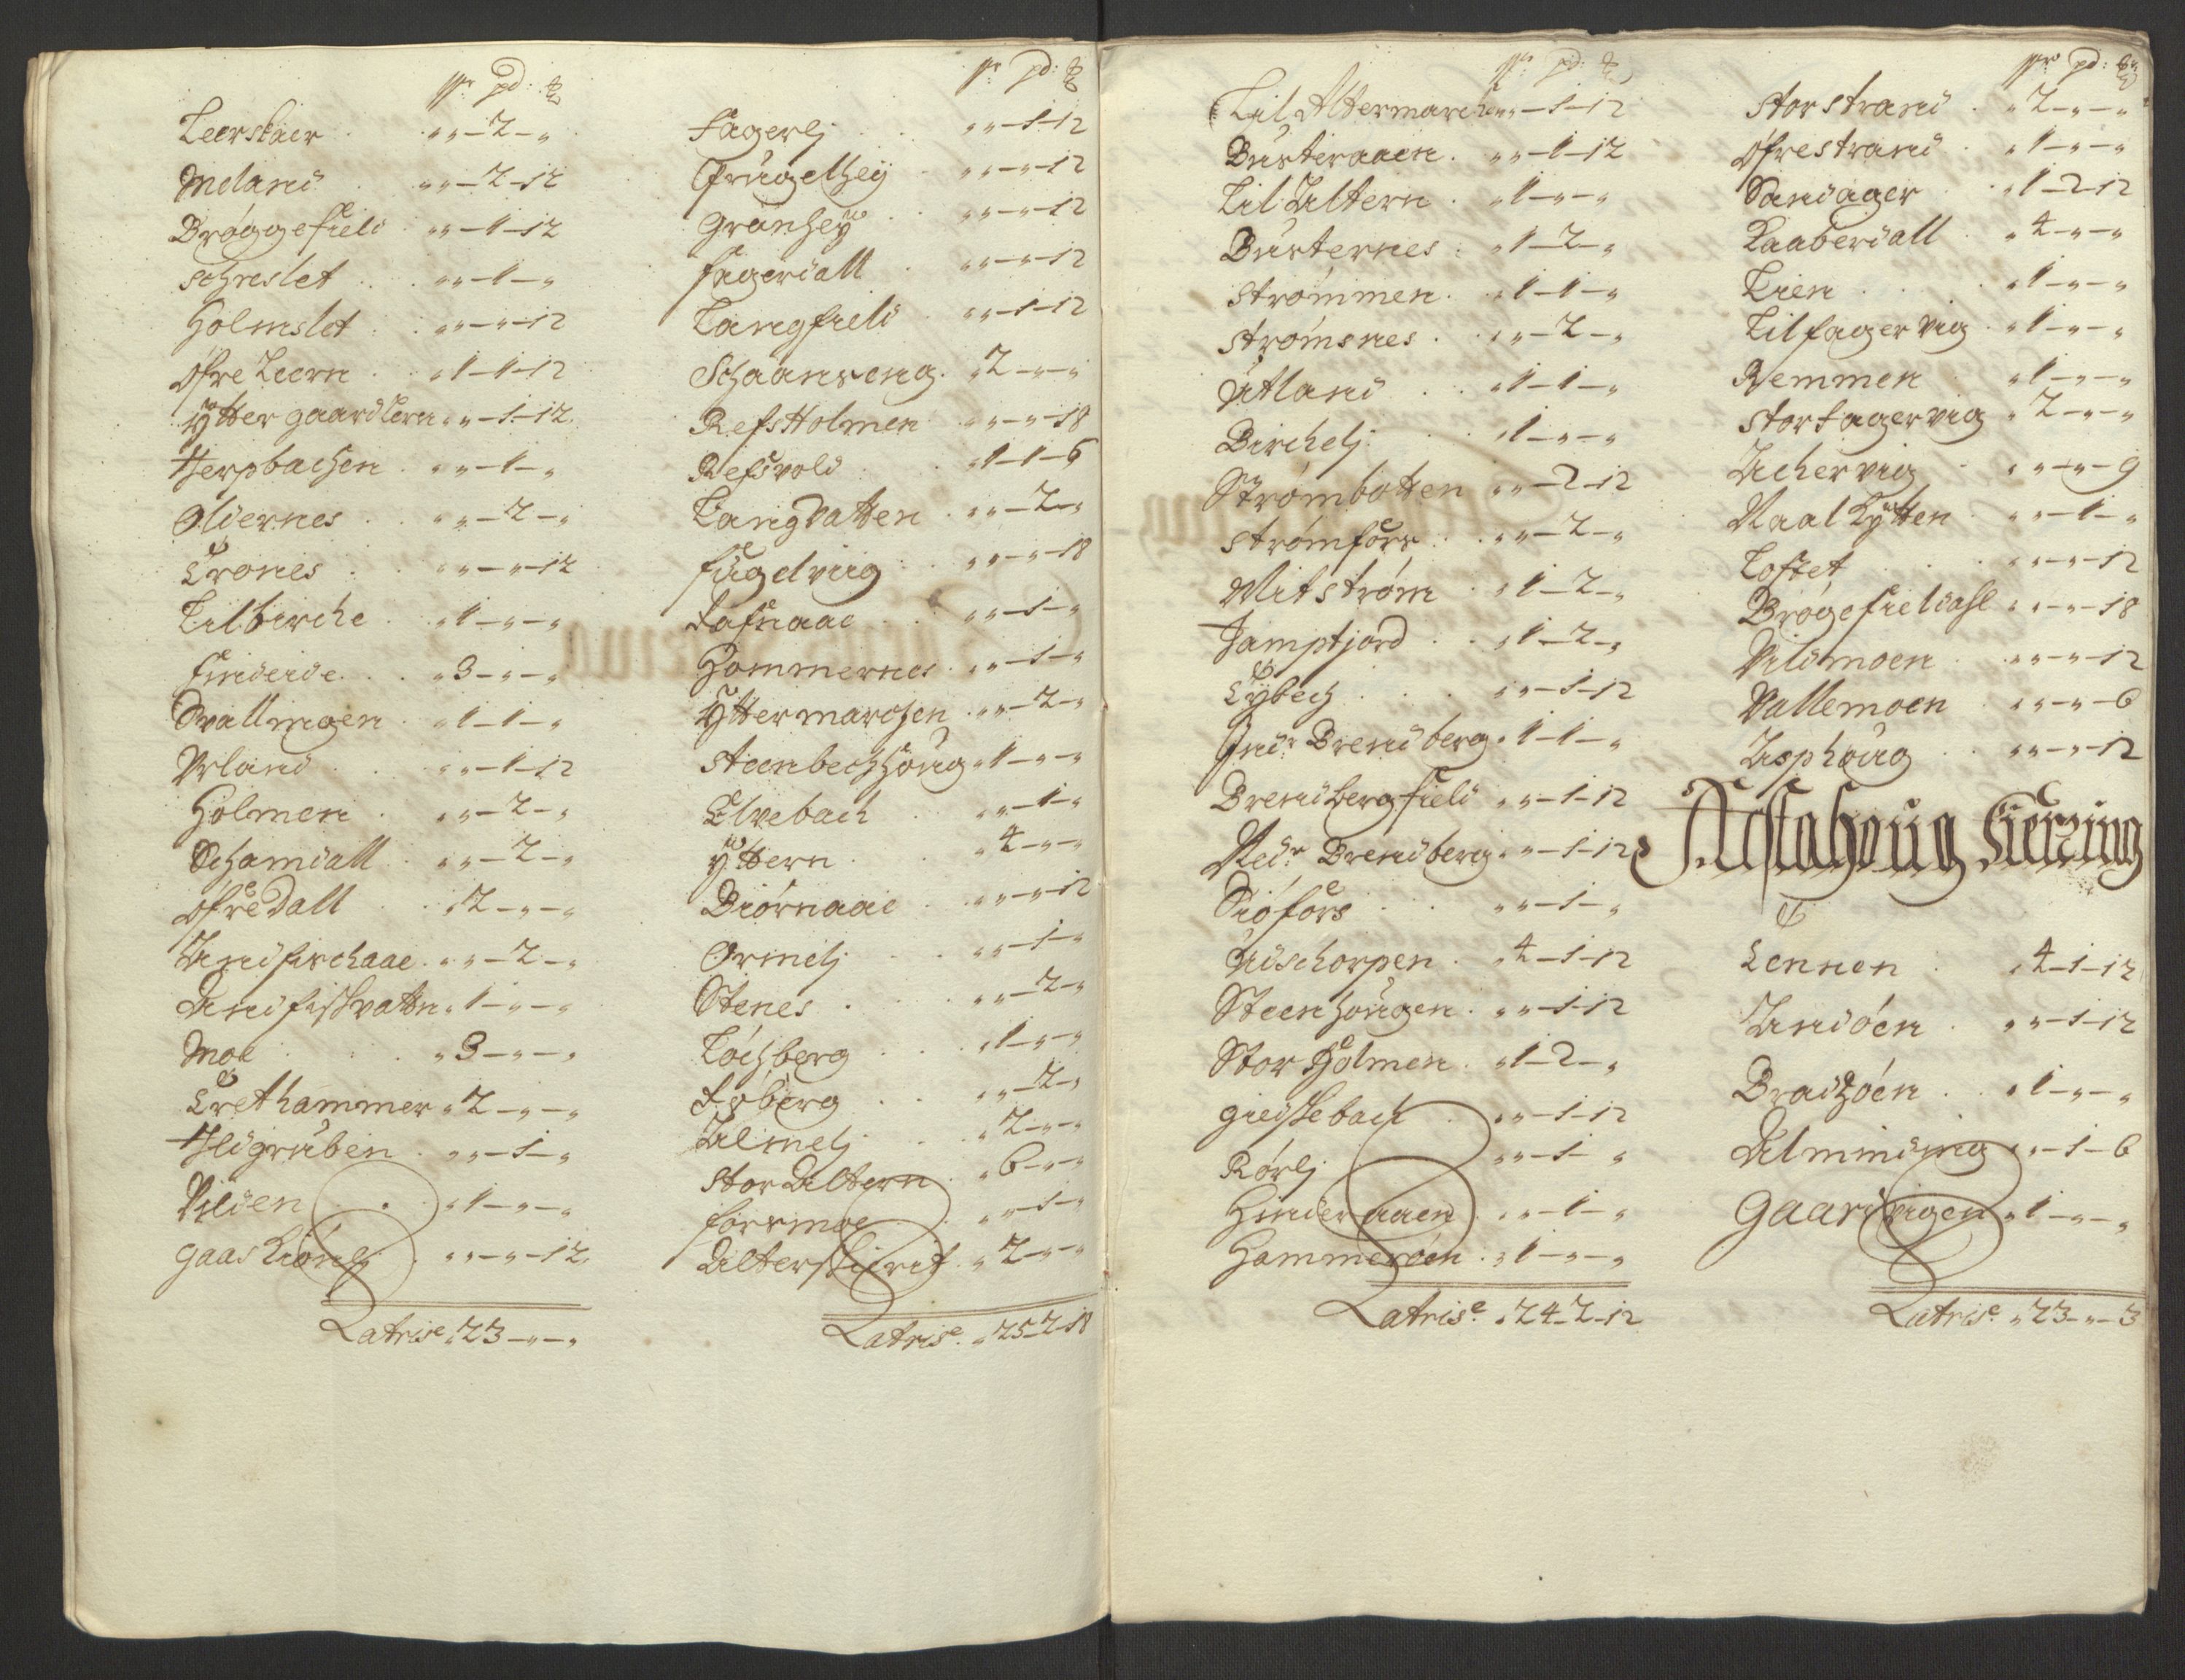 Leerskier „ „ – 2 – „
Meland „ „ – 2 – 12
Brøggefield „ „ – 1 – 12
Schreslet „ „ – 1 – „
Holmslet „ „ – „ – 12
Øfre Leern „ 1 – 1 – 12
Ytter gaardlern „ „ – 1 – 12
Herpbachen „ „ – 1 – „
Oldernes „ „ – 2 – „
Crones „ „ – „ – 12
Lilbirche „ 1 – „ – „
Findeide „ 3 – „ – „
Svallmoen „ 1 – 1 – „
Urland „ „ – 1 – 12
Holmen „ „ – 2 – „
Schamdall „ „ – 2 – „
Øfre Dall „ 2 – „ – „
Andfischaae „ „ – 2 – „
Andfischvattn „ 1 – „ – „
Moe „ 3 – „ – „
Crethammer „ 2 – „ – „
Ildgruben „ „ – 1 – „
Ylden „ 1 – „ – „
Gaaskiønli „ „ – „ – 12
Latris: „ 23 – „ – „
pd:
Fagerlj „ „ – 1 – 12
Frugelhey „ „ – „ – 12
Grønhey „ „ – „ – 12
Fagerdall „ „ – „ – 12
Langfield „ „ – 1 – 12
Schaanseng „ 2 – „ – „
Refsholmen „ „ – „ – 18
Refsvold „ 1 – 1 – 6
Langvatten „ „ – 2 – „
Fugelviig „ „ – „ – 18
Dafnaae „ „ – 1 – „
Hommernes „ „ – 1 – „
Yttermarchen „ „ – 2 – „
Steenbechhoug „ 1 – „ – „
Elvebach „ „ – 1 – „
Yttern „ 4 – „ – „
Biørnaae „ „ – „ – 12
Ormelj „ „ – 1 – „
Stenes „ „ – 2 – „
Løchberg „ 1 – „ – „
Røberg „ „ – 2 – „
Almelj „ 2 – „ – „
Stor Altern „ 6 – „ – „
Forsmoe „ „ – 1 – „
Alterschierit „ 2 – „ – „
Latris: „ 25 – 2 – 18
pd:
Lil Altermarchen „ „ – 1 – 12
Busteraaen „ „ – 1 – 12
Lil Altern „ 1 – „ – „
Busternes „ 1 – 2 – „
Strømmen „ 1 – 1 – „
Strømsnes „ „ – 2 – „
Utland „ 1 – 1 – „
Birchelj „ 1 – „ – „
Strømbotten „ „ – 2 – 12
Strømfors „ „ – 2 – „
Mitstrøm „ 1 – 2 – „
Jamptjord „ 1 – 2 – „
Lybech „ „ – 1 – 12
Indr Brendberg „ 1 – 1 – „
Brendbergfield „ „ – 1 – 12
Nedr Brendberg „ „ – 1 – 12
Siøfors „ „ – 1 – „
Udschorpen „ 4 – 1 – 12
Steenhougen „ „ – 1 – 12
Stor Holmen „ 1 – 2 – „
Giedsebach „ „ – 1 – 12
Rørlj „ „ – 1 – „
Hinderaaen „ „ – 1 – „
Hammerøen „ 1 – „ – „
Latris: „ 24 – 2 – 12
pd:
Storstrand „ 2 – „ – „
Øfrestrand „ 1 – „ – „
Sandager „ 1 – 2 – 12
Kaaberdall „ 4 – „ – „
Lien „ 1 – „ – „
Lilfagervig „ 1 – „ – „
Remmen „ 1 – „ – „
Storfagervig „ 2 – „ – „
Achervig „ „ – „ – 9
Naal Kytten „ „ – 1 – „
Loftet „ „ – „ – 12
Brøgefieldahl „ „ – „ – 18
Vildmoen „ „ – „ – 12
Vallemoen „ „ – „ – 6
Asphoug „ „ – „ – 12
Alstahoug Fierding
Lennen „ 4 – 1 – 12
Andøen „ „ – 1 – 12
Bradzøen „ 1 – „ – „
Alminding „ „ – 1 – 6
Gaardvigen „ 1 – „ – „
Latris: „ 23 – „ – 3